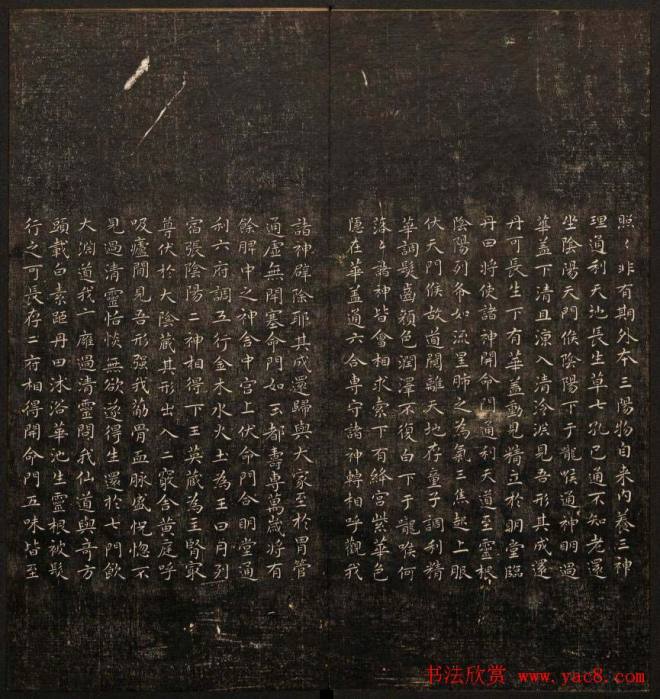 照〻非有期外本三陽物自来内養三神
理過利天地長生草七孔已通不知老還
坐陰陽天門候陰陽下于龍喉通神明過
華蓋下清且涼入清泠淵見吾形其成還
丹可長生下有華蓋動見精立於明堂臨
丹田將使諸神開命門通利天道至靈根
陰陽列布如流星肺之為氣三焦起上服
伏天門候故道闚離天地存童子調利精
華調髮齒顔色潤澤不復白下于龍喉何
落〻諸神皆會相求索下有絳宮紫華色
隱在華蓋通六合專守諸神轉相呼觀我
諸神辟除耶其成還歸與大家至於胃管
通虚無閉塞命門如玉都壽專萬歲將有
餘脾中之神舍中宮上伏命門合明堂通
利六府調五行金木水火土為王日月列
宿張陰陽二神相得下玉英藏為三腎最
尊伏於大陰藏其形出入二竅舍黄庭呼
吸廬間見吾形强我筋骨血脉盛怳惚不
見過清靈恬惔無欲遂得生還於七門飲
大淵道我玄雍過清靈問我仙道與奇方
頭載白素距丹田沐浴華池生靈根被髮
行之可長存二府相得開命門五味皆至
书法欣赏 www.yac8.com